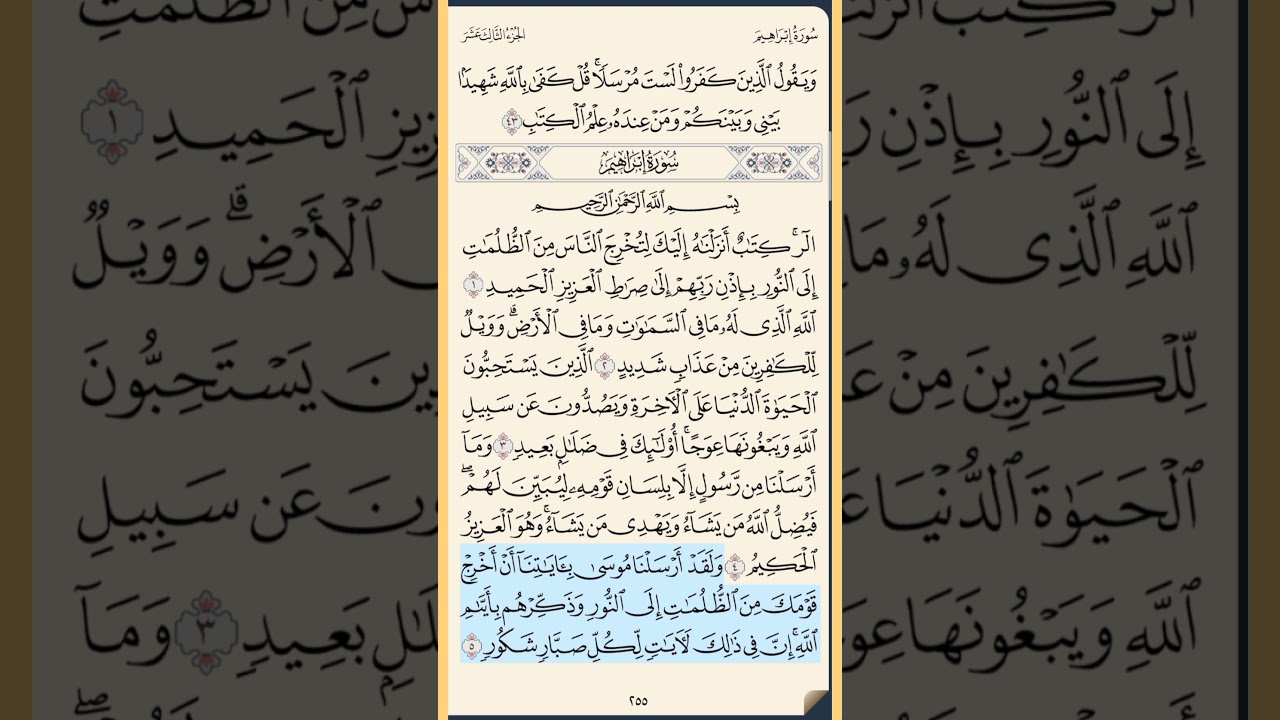 سُورَةُ إِبۡرَاهِيمَ
الجُزْءُ الثَّالِثَ عَشَرَ
وَيَقُولُ ٱلَّذِينَ كَفَرُواْ لَسۡتَ مُرۡسَلٗاۚ قُلۡ كَفَىٰ بِٱللَّهِ شَهِيدَۢا
بَيۡنِي وَبَيۡنَكُمۡ وَمَنۡ عِندَهُۥ عِلۡمُ ٱلۡكِتَٰبِ ٤٣
سُورَةُ إِبۡرَاهِيمَ
بِسۡمِ ٱللَّهِ ٱلرَّحۡمَٰنِ ٱلرَّحِيمِ
الٓرۚ كِتَٰبٌ أَنزَلۡنَٰهُ إِلَيۡكَ لِتُخۡرِجَ ٱلنَّاسَ مِنَ ٱلظُّلُمَٰتِ
إِلَى ٱلنُّورِ بِإِذۡنِ رَبِّهِمۡ إِلَىٰ صِرَٰطِ ٱلۡعَزِيزِ ٱلۡحَمِيدِ ١
ٱللَّهِ ٱلَّذِي لَهُۥ مَا فِي ٱلسَّمَٰوَٰتِ وَمَا فِي ٱلۡأَرۡضِۗ وَوَيۡلٞ
لِّلۡكَٰفِرِينَ مِنۡ عَذَابٖ شَدِيدٍ ٢ ٱلَّذِينَ يَسۡتَحِبُّونَ
ٱلۡحَيَوٰةَ ٱلدُّنۡيَا عَلَى ٱلۡأٓخِرَةِ وَيَصُدُّونَ عَن سَبِيلِ
ٱللَّهِ وَيَبۡغُونَهَا عِوَجًاۚ أُوْلَٰٓئِكَ فِي ضَلَٰلِۭ بَعِيدٖ ٣ وَمَآ
أَرۡسَلۡنَا مِن رَّسُولٍ إِلَّا بِلِسَانِ قَوۡمِهِۦ لِيُبَيِّنَ لَهُمۡۖ
فَيُضِلُّ ٱللَّهُ مَن يَشَآءُ وَيَهۡدِي مَن يَشَآءُۚ وَهُوَ ٱلۡعَزِيزُ
ٱلۡحَكِيمُ ٤ وَلَقَدۡ أَرۡسَلۡنَا مُوسَىٰ بِـَٔايَٰتِنَآ أَنۡ أَخۡرِجۡ
قَوۡمَكَ مِنَ ٱلظُّلُمَٰتِ إِلَى ٱلنُّورِ وَذَكِّرۡهُم بِأَيَّىٰمِ
ٱللَّهِۚ إِنَّ فِي ذَٰلِكَ لَأٓيَٰتٖ لِّكُلِّ صَبَّارٖ شَكُورٖ ٥
٢٥٥